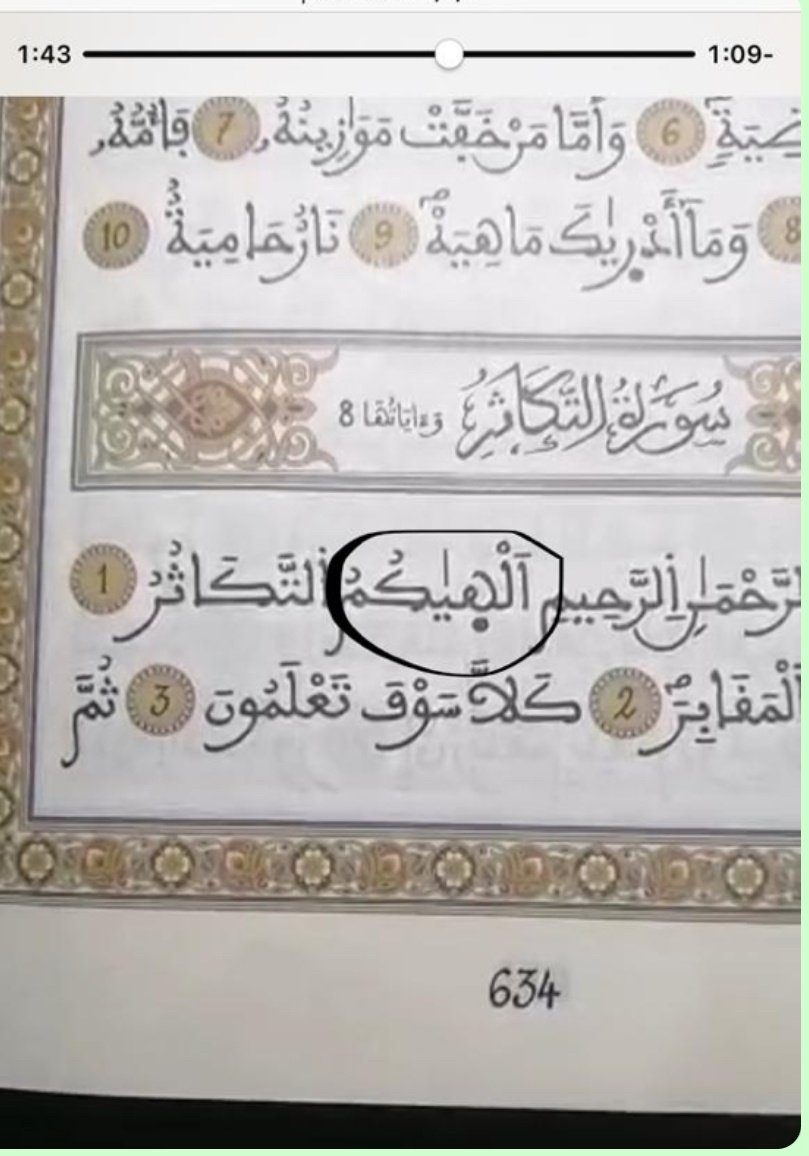 1:43 1:09-
6 وَأَمَّا مَنْ خَفَّتْ مَوَٰزِينُهُۥ 7 فَأُمُّهُۥ
8 وَمَآ أَدْرَىٰكَ مَا هِيَهْ 9 نَارٌ حَامِيَةٌ 10
سُورَةُ التَّكَاثُرِ وَءَايَاتُهَا 8
اَ۬لرَّحْمَٰنِ اِ۬لرَّحِيمِ أَلْهَىٰكُمُ اُ۬لتَّكَاثُرُ 1
اُ۬لْمَقَابِرَ 2 كَلَّا سَوْفَ تَعْلَمُونَ 3 ثُمَّ
634